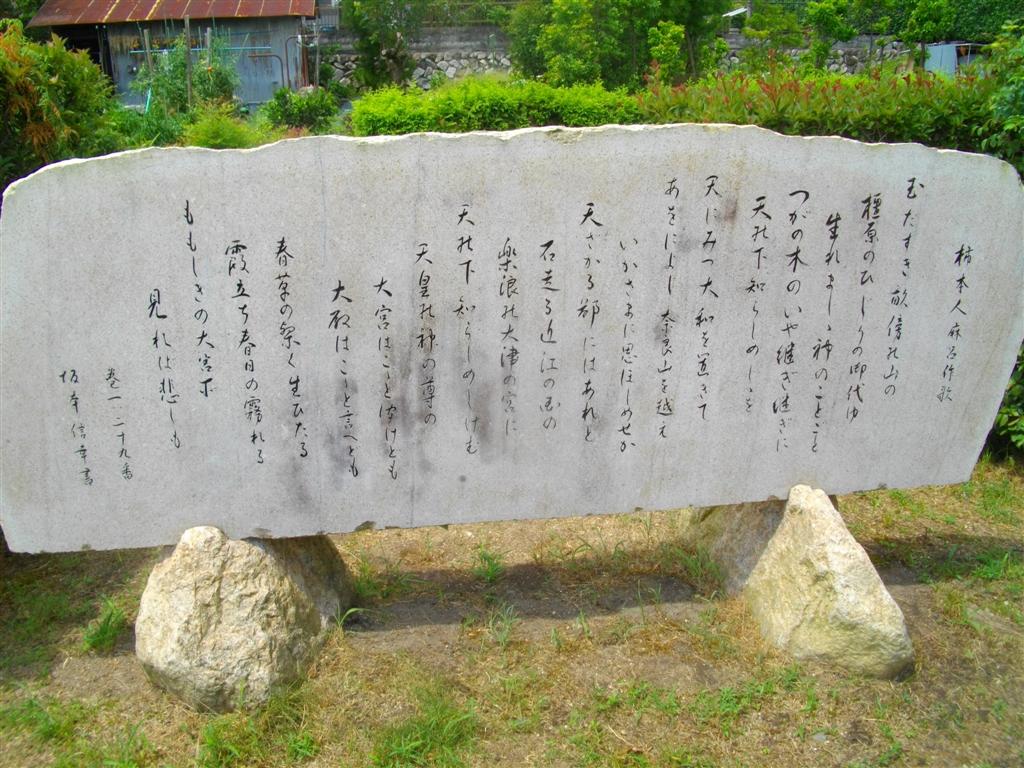 柿本人麻呂作歌
玉たすき畝傍の山の
橿原のひじりの御代ゆ
生れましゝ神のことごと
つがの木のいや継ぎ継ぎに
天の下知らしめしゝを
天にみつ大和を置きて
あをによし奈良山を越え
いかさまに思ほしめせか
天ざかる鄙にはあれど
石走る近江の国の
楽浪の大津の宮に
天の下知らしめしけむ
天皇の神の尊の
大宮はこゝと聞けども
大殿はこゝと言へども
春草の繁く生ひたる
霞立ち春日の霧れる
ももしきの大宮所
見れば悲しも
巻一・二十九番
坂本信幸書